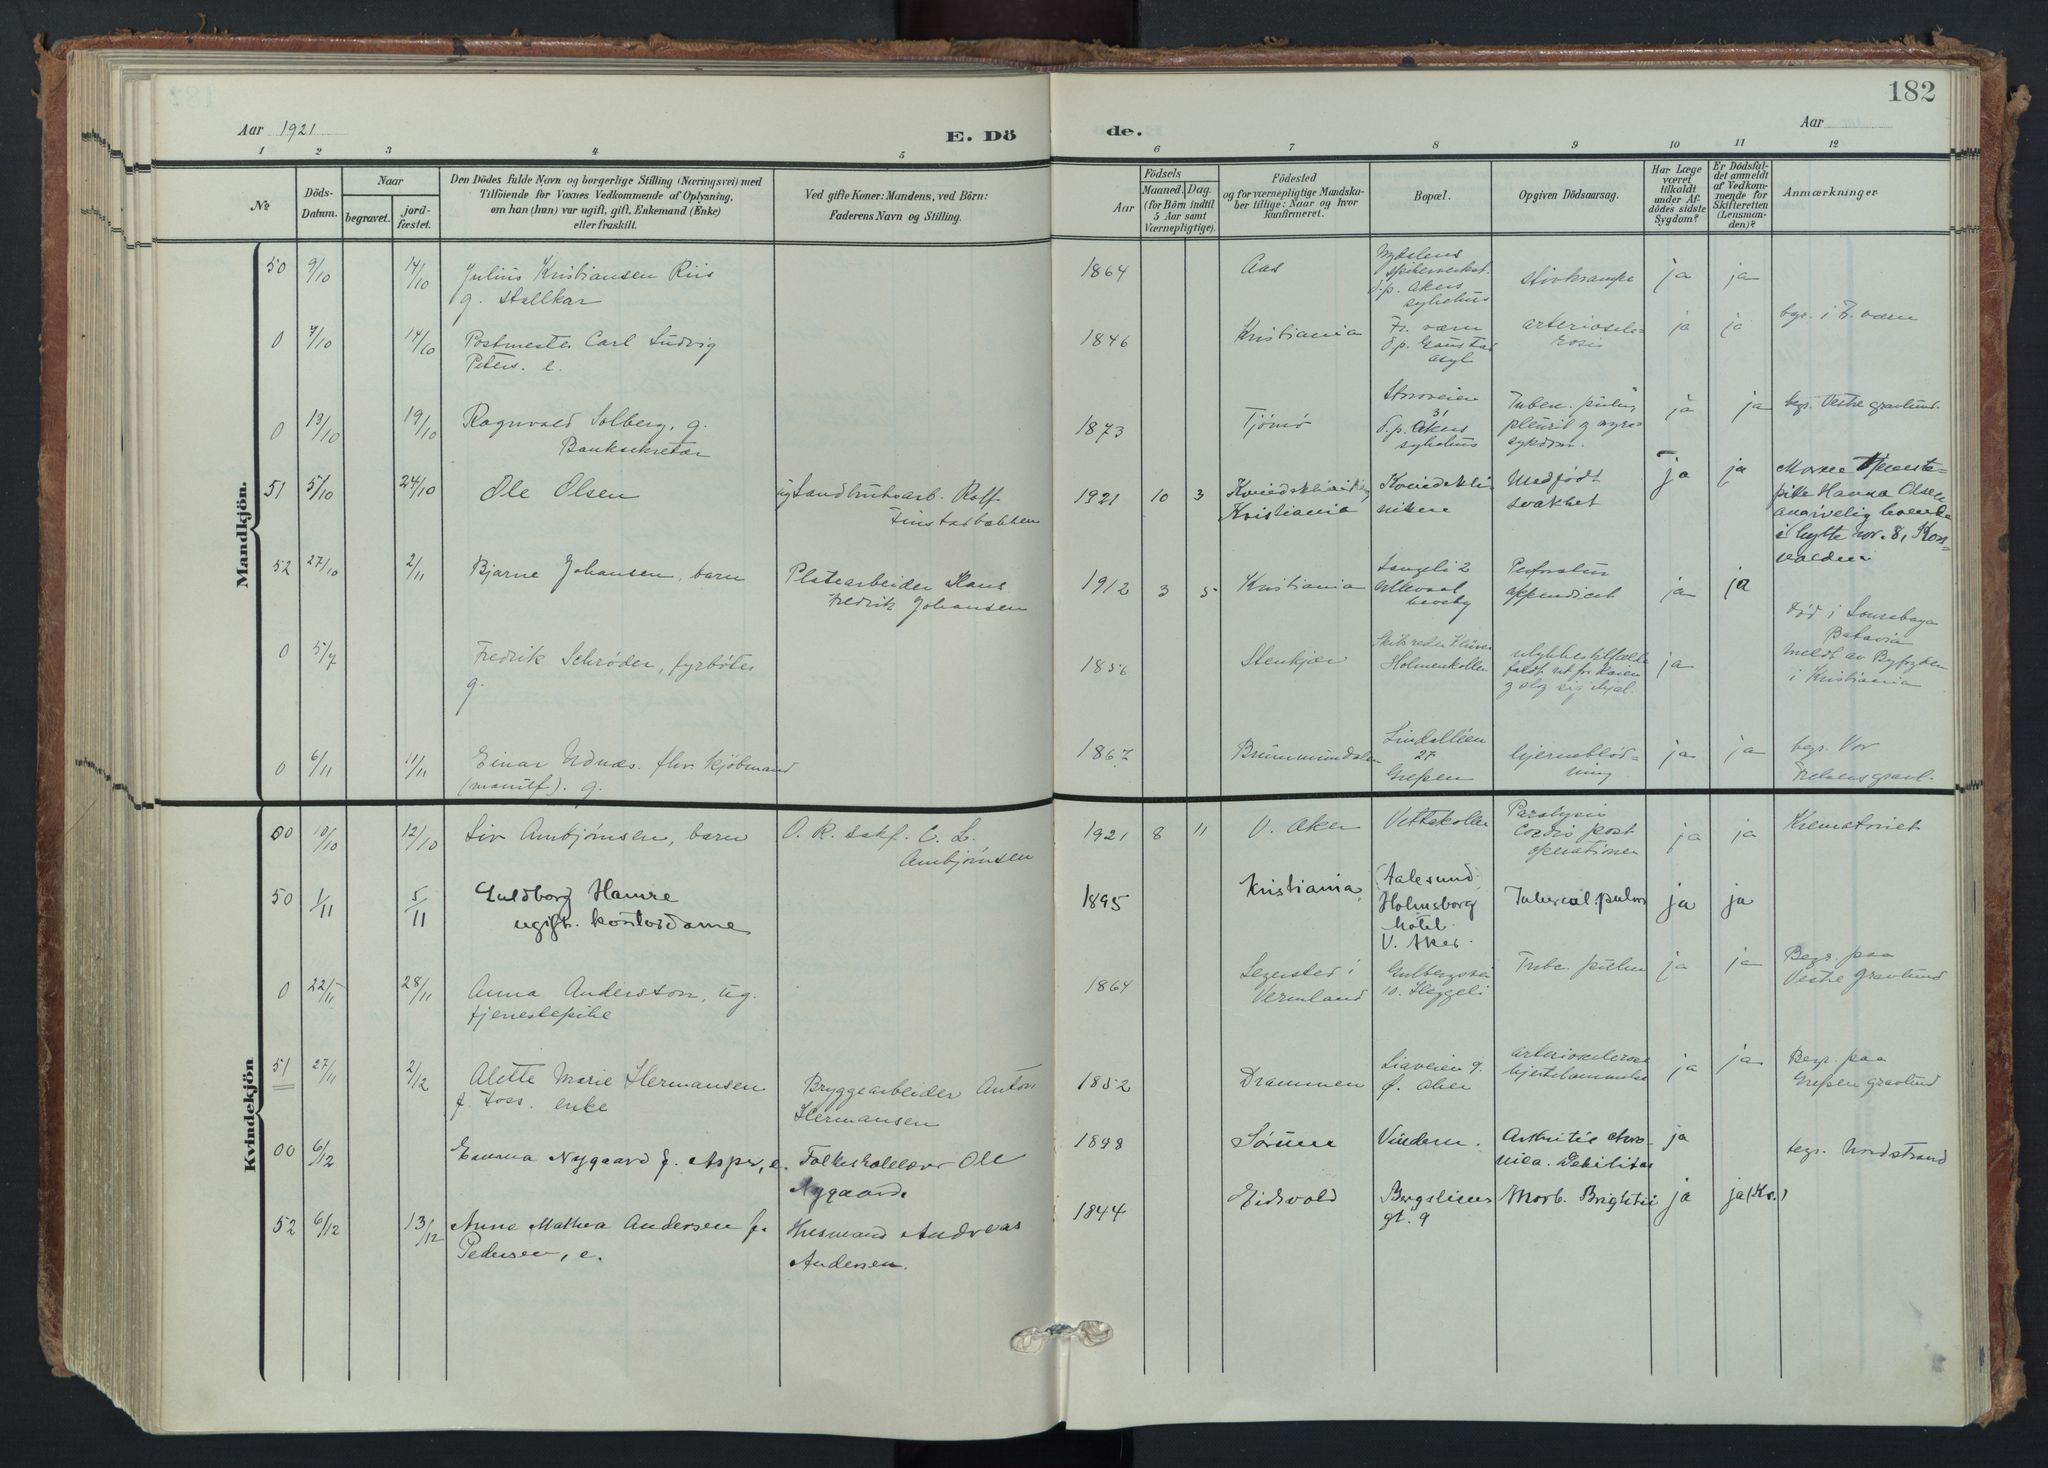 182
Aar 1921
E. Dö
de.
Aar
1 2 3 4 5 6 7 8 9 10 11 12
№
Döds-
Datum.
Naar
begravet.
jord-
fæstet.
Den Dödes fulde Navn og borgerlige Stilling (Næringsvei) med
Tilföiende for Voxnes Vedkommende af Oplysning,
om han (hun) var ugift, gift, Enkemand (Enke)
eller fraskilt.
Ved gifte Koner: Mandens, ved Börn:
Faderens Navn og Stilling.
Födsels
Aar
Maaned. Dag.
(for Börn indtil
5 Aar samt
Værnepligtige).
Födested
og for værnepligtige Mandska-
ber tillige: Naar og hvor
Konfirmeret.
Bopæl.
Opgiven Dödsaarsag.
Har Læge
været
tilkaldt
under Af-
dödes sidste
Sygdom?
Er Dödsfal-
det anmeldt
af Vedkom-
mende for
Skifteretten
(Lensman-
den)?
Anmærkninger
Mandkjön.
50 9/10 14/10 Julius Kristiansen Riis
g. Stallkar
1864 Aas
d.p. Akers
sykehus
stivkrampe ja ja
0 7/10 14/10 Postmester Carl Ludvig
Peters. e.
1846 Kristiania Fr. værn
d.p. Gaustad
asyl
arterioscle-
rosis
ja ja begr. i Fr. værn
0 13/10 19/10 Ragnvald Solberg, g.
Banksekretær
1873 Tjömö Storoveien
31
d.p. Akers
sykehus
Tuberc. pulm,
pleurit g nyre
sykdom.
ja ja begr. Vestre gravlund.
51 5/10 24/10 Ole Olsen
ug Landbruksarb. Rolf
Finstadbakken
1921 10 3 Kvindeklinikken
Kristiania
Kvindekli
niken
Medfödt
svakhet
ja ja Moren Tjeneste-
pike Hanna Olsen
angivelig boende
i hytte nr. 8, Kors-
volden
52 27/10 2/11 Bjarne Johansen, barn
Platearbeider Hans
Fredrik Johansen
1912 3 5 Kristiania Langeli 2
Ullevaal
haveby
Perforatus
appendicit
ja ja
0 5/7 Fredrik Schrøder, fyrbøter
g.
1856 Stenkjær
Holmenkollen
ulykkestilfælde
faldt ut for kaien
g slog sig ihjel.
ja
död i Sourabaya
Batavia
Meldt av Byfogden
i Kristiania
0 6/11 11/11 Einar Udnæs. fhv. kjöbmand
(manuf). g.
1867 Brummundalen Lindalléen
27
Grefsen
hjerneblöd-
ning
ja ja begr. Vor
Frelsers gravl.
Kvindekjön
00 10/10 12/10 Liv Arnbjørnsen, barn
O. R. sakf. C. L.
Arnbjørnsen
1921 8 11 V. Aker Vettakollen Paralysis
Cordis post
operationen
ja ja Krematoriet
50 1/11 5/11 Guldborg Hamre
ugift. kontordame
1895 Kristiania, (Aalesund)
Holmsborg
hotel
V. Aker.
Tubercul. pulm ja ja
0 22/11 28/11 Anna Anderston, ug.
tjenestepike
1864 Segersted i
Vermland
Gulbergsvei
10. Heggeli
Tube. pulm ja ja Begr. paa
Vestre Gravlund
51 27/11 2/12 Alette Marie Hermansen
f. Foss. enke
Bryggearbeider Anton
Hermansen
1852 Drammen Liaveien 9
Ø. Aker
arteriosclerose
hjertelammelse
ja ja Begr. paa
Grefsen gravlund
00 6/12 Emma Nygaard f. Asper, e.
Folkeskolelærer Ole
Nygaard.
1848 Sørum Vindern. Arthritis chro-
nica. Debilitas
ja begr. Nordstrand
52 6/12 13/12 Anne Mathea Andersen f.
Pedersen, e.
Husmand Andreas
Andersen.
1844 Eidsvold Bergsliens
gt. 9
Morb. Brightii ja ja (Kr.)